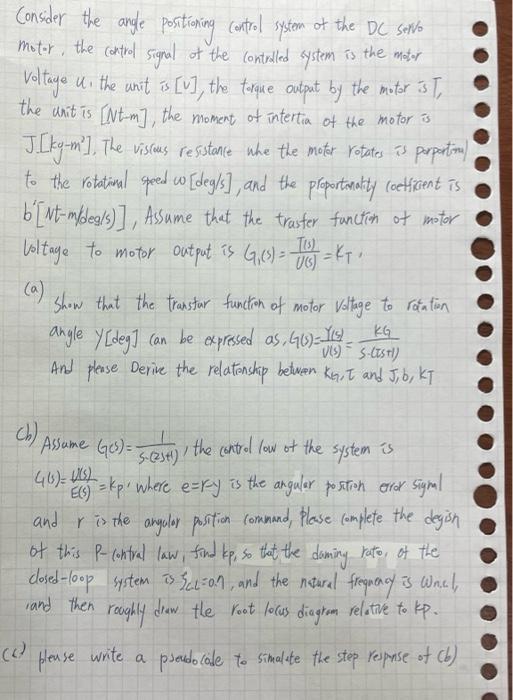 Consider the angle positioning control system of the DC servo
motor, the control signal of the controlled system is the motor
Voltage u, the unit is [V], the torque output by the motor is T,
the unit is [Nt-m], the moment of intertia of the motor is
J[kg-m²], The viscous resistance whe the motor rotates is perportinal
to the rotational speed ω[deg/s], and the proportionality coefficient is
b'[Nt-m/deg/s)], Assume that the traster function of motor
Voltage to motor output is G₁(s)=T(s)/U(s)=KT.
(a)
Show that the transtur function of motor voltage to rotation
angle y[deg] can be expressed as, G(s)=Y(s)/U(s)=KG/S·(τs+1)
And please Derive the relationship between KG, τ and J, b, KT
(b) Assume G(s)=1/S·(2s+1), the control low of the system is
G(s)=U(s)/E(s)=kp, where e=r-y is the angular position error signal
and r is the angular position command, Please complete the degisn
of this P-control law, find kp, so that the daming rato, of the
closed-loop system is ζCL=0.7, and the natural freqnency is Wn,cl,
and then roughly draw tle root locus diagram relative to kp.
(c) please write a pseudocode to simalate the step response of (b)